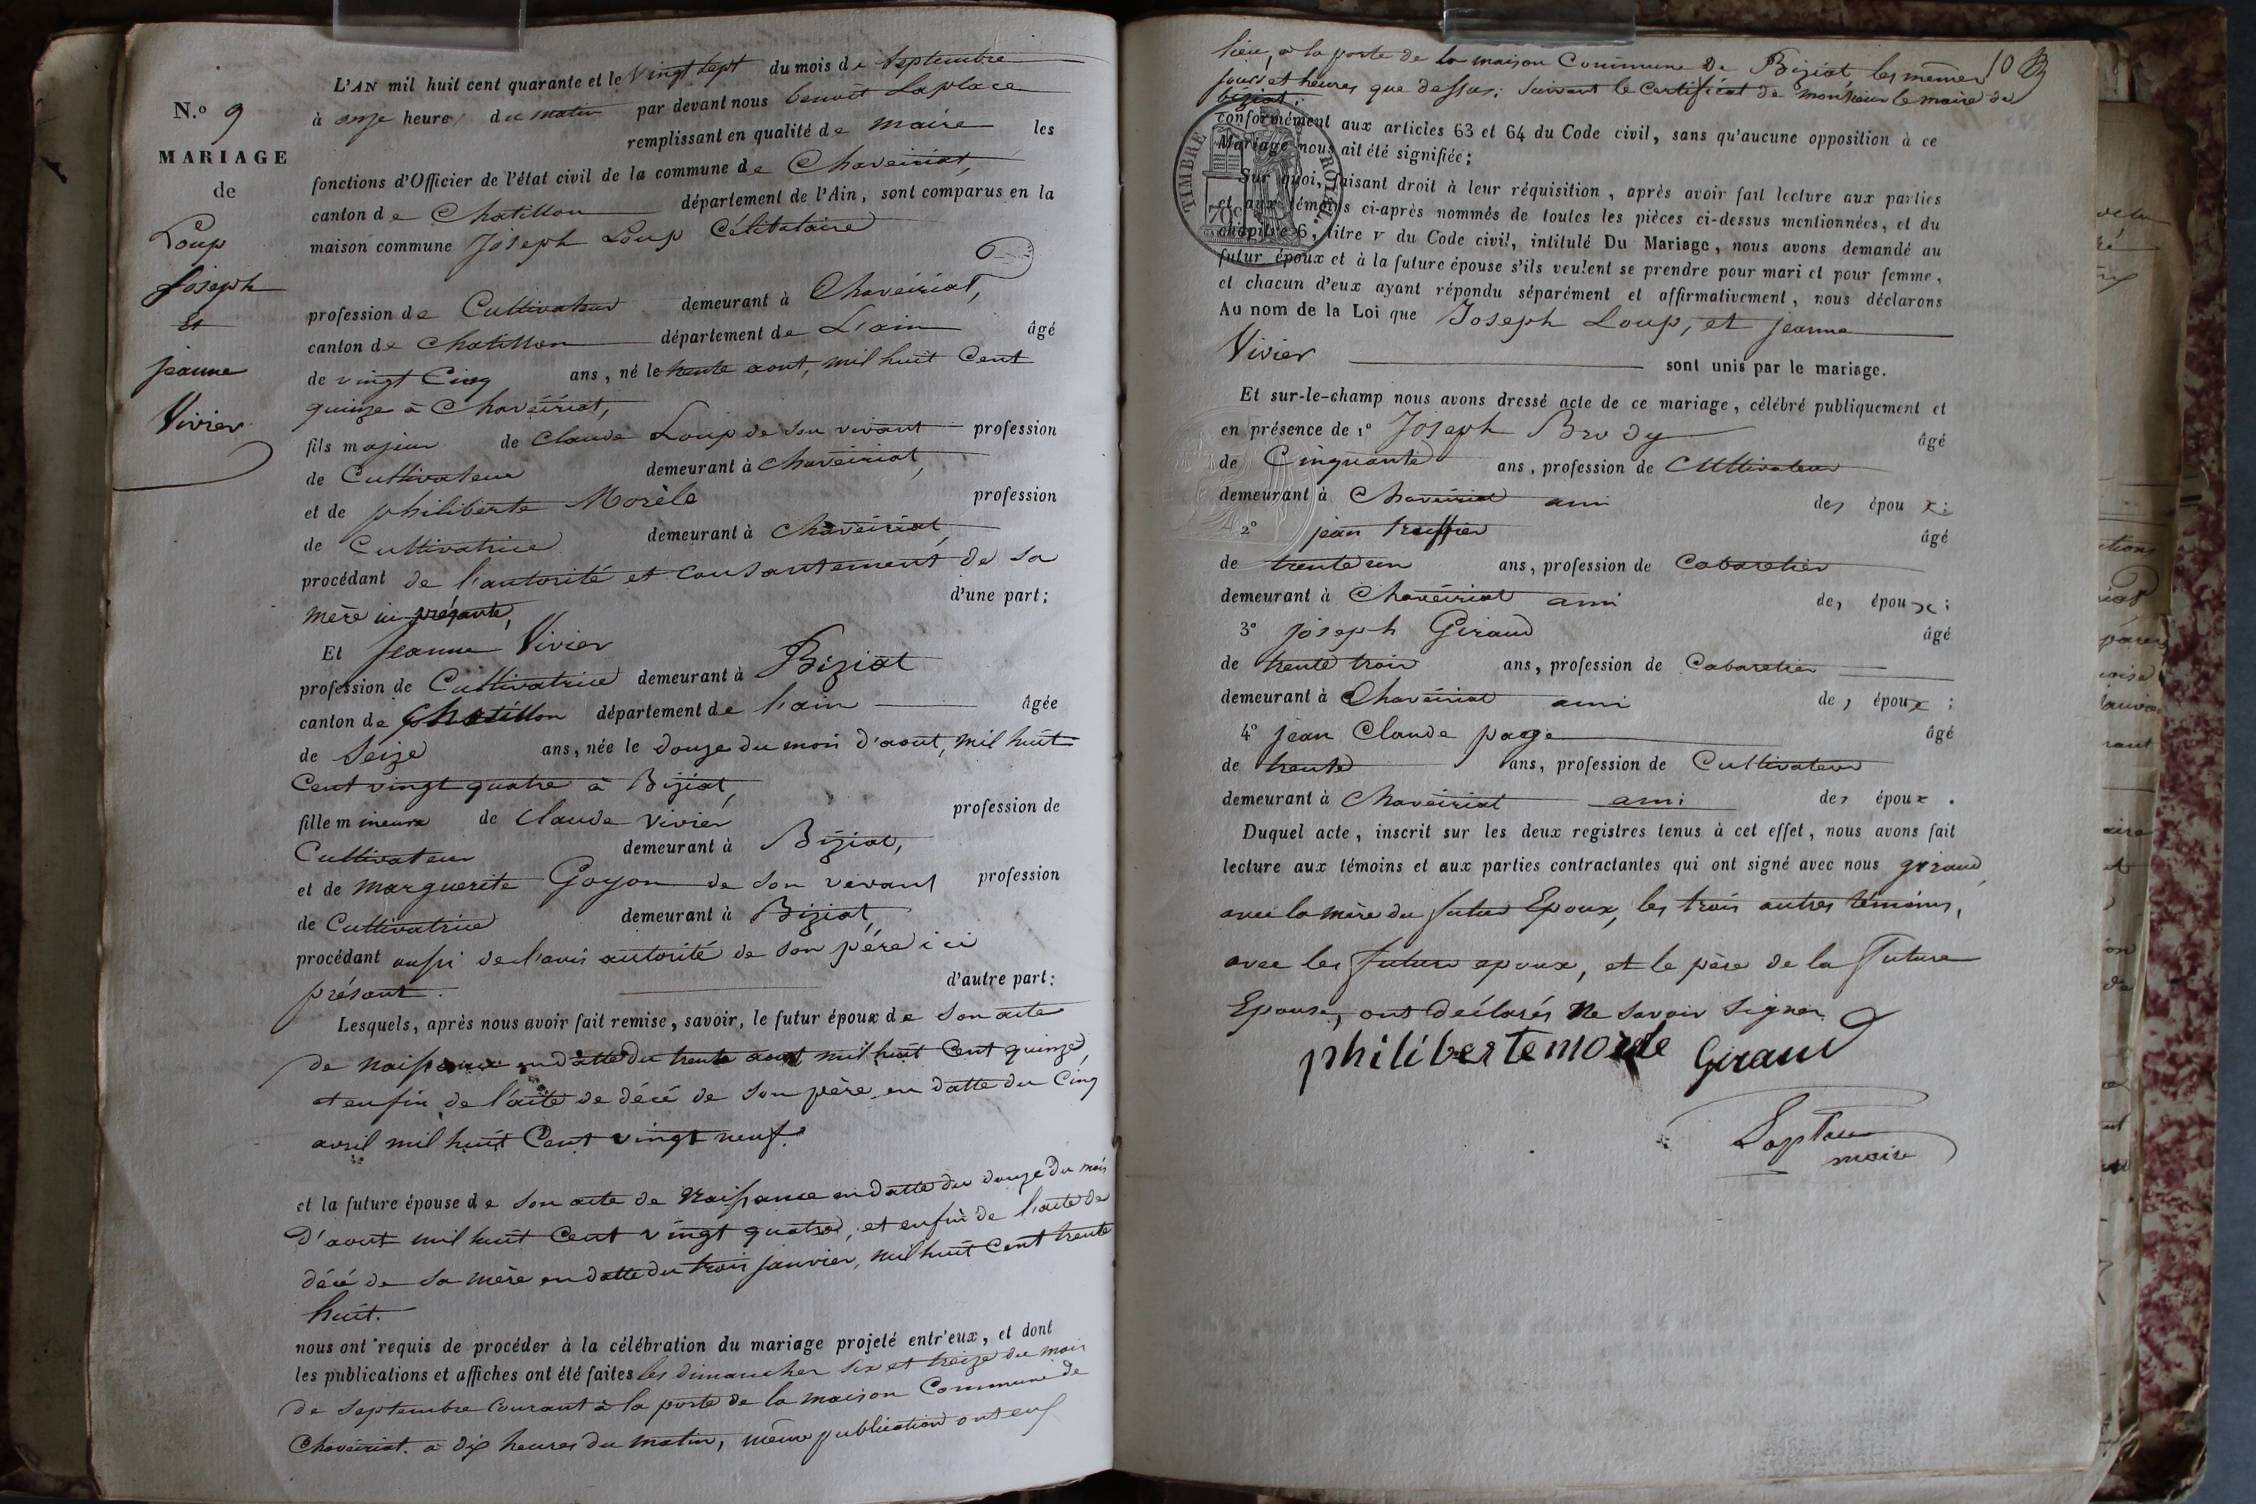 N.º 9
MARIAGE
de
Loup
Joseph
et
jeanne
Vivier
L'AN mil huit cent quarante et le Vingt Sept du mois de Septembre
à onze heures du matin par devant nous benoit Laplace
remplissant en qualité de maire les
fonctions d'Officier de l'état civil de la commune de Chaveiriat,
canton de Chatillon département de l'Ain, sont comparus en la
maison commune Joseph Loup Célibataire
profession de Cultivateur demeurant à Chaveiriat,
canton de Chatillon département de L'ain âgé
de vingt Cinq ans, né le trente aout, mil huit Cent
quinze à Chaveiriat,
fils majeur de Claude Loup de son vivant profession
de Cultivateur demeurant à Chaveiriat,
et de philiberte Morèle profession
de Cultivatrice demeurant à Chaveiriat,
procédant de l'autorité et consantement de sa
mère ici présante, d'une part;
Et Jeanne Vivier
profession de Cultivatrice demeurant à Biziat
canton de Chatillon département de l'ain âgée
de Seize ans, née le douze du mois d'aout, mil huit
Cent vingt quatre à Biziat,
fille mineure de Claude Vivier profession de
Cultivateur demeurant à Biziat,
et de marguerite Goyon de son vivant profession
de Cultivatrice demeurant à Biziat,
procédant aussi de l'avis autorité de son père ici
présant. d'autre part:
Lesquels, après nous avoir fait remise, savoir, le futur époux de son acte
de naissance en datte du trente aout mil huit Cent quinze,
et enfin de l'acte de décé de son père en datte du Cinq
avril mil huit Cent vingt neuf.
et la future épouse de son acte de Naissance en datte du douze du mois
d'aout mil huit Cent vingt quatre, et enfin de l'acte de
décé de sa mère en datte du trois janvier, mil huit Cent trente
huit.
nous ont requis de procéder à la célébration du mariage projeté entr'eux, et dont
les publications et affiches ont été faites les dimanches six et treize du mois
de Septembre Courant à la porte de la maison Commune de
Chaveiriat. à dix heures du matin, même publication ont eu
10 B
lieu, à la porte de la maison Commune de Biziat les mêmes
jours et heures que dessus; suivant le Certificat de monsieur le maire de
biziat;
conformément aux articles 63 et 64 du Code civil, sans qu'aucune opposition à ce
Mariage nous ait été signifiée;
TIMBRE ROYAL
70c
Sur quoi, faisant droit à leur réquisition, après avoir fait lecture aux parties
et aux témoins ci-après nommés de toutes les pièces ci-dessus mentionnées, et du
chapitre 6, titre v du Code civil, intitulé Du Mariage, nous avons demandé au
futur époux et à la future épouse s'ils veulent se prendre pour mari et pour femme,
et chacun d'eux ayant répondu séparément et affirmativement, nous déclarons
Au nom de la Loi que Joseph Loup, et jeanne
Vivier sont unis par le mariage.
Et sur-le-champ nous avons dressé acte de ce mariage, célébré publiquement et
en présence de 1º Joseph Brody âgé
de Cinquante ans, profession de Cultivateur
demeurant à Chaveiriat ami des époux;
2º jean âgé
de trente un ans, profession de Cabaretier
demeurant à Chaveiriat ami des époux;
3º joseph Giraud âgé
de trente trois ans, profession de Cabaretier
demeurant à Chaveiriat ami des époux;
4º jean Claude page âgé
de trente ans, profession de Cultivateur
demeurant à Chaveiriat ami des époux.
Duquel acte, inscrit sur les deux registres tenus à cet effet, nous avons fait
lecture aux témoins et aux parties contractantes qui ont signé avec nous giraud,
avec la mère du futur Epoux, les trois autres témoins,
avec les futurs epoux, et le père de la Future
Epouse, ont déclarés Ne savoir signer
philiberte morele Giraud
Laplace
maire